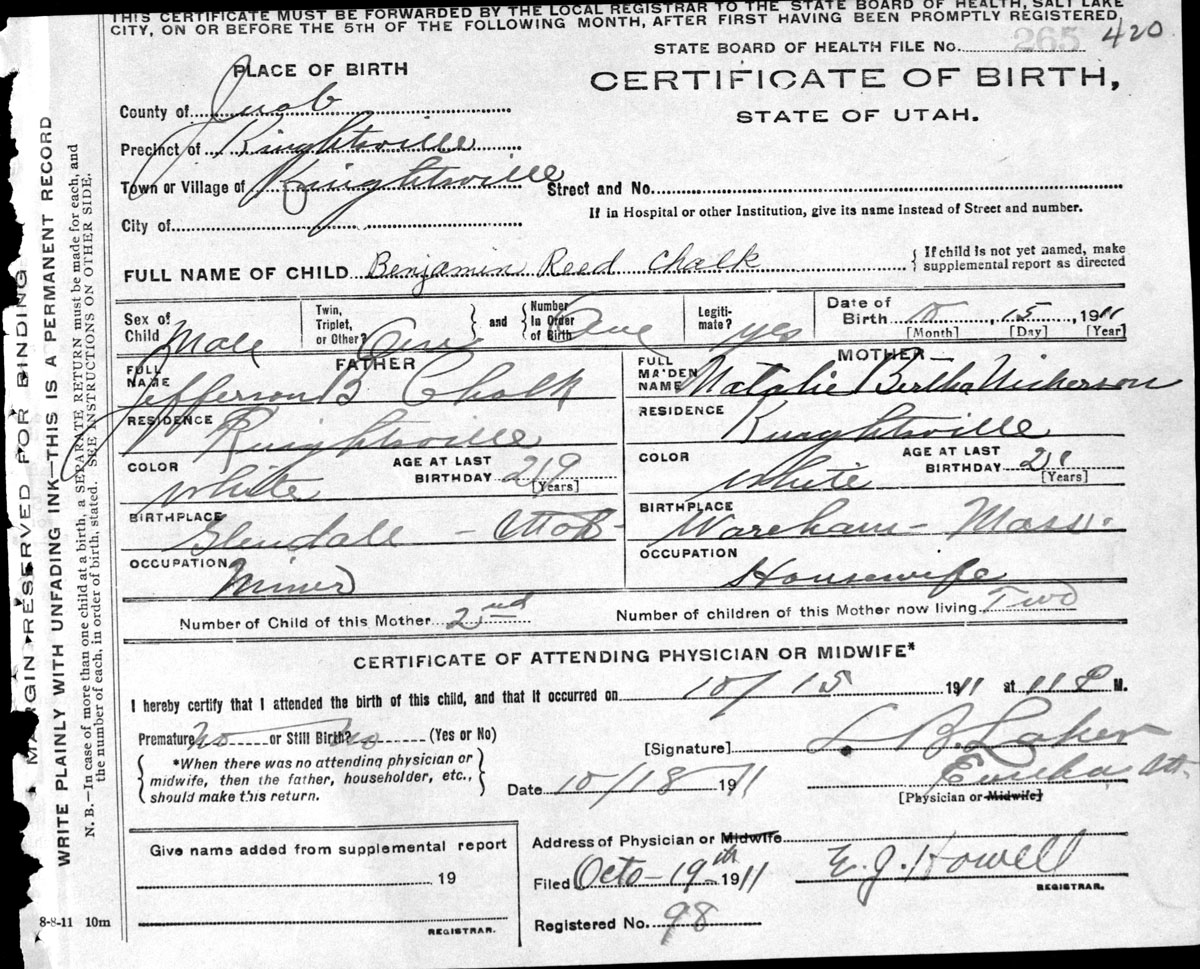 THIS CERTIFICATE MUST BE FORWARDED BY THE LOCAL REGISTRAR TO THE STATE BOARD OF HEALTH, SALT LAKE
CITY, ON OR BEFORE THE 5TH OF THE FOLLOWING MONTH, AFTER FIRST HAVING BEEN PROMPTLY REGISTERED
STATE BOARD OF HEALTH FILE No. 265 420
PLACE OF BIRTH
CERTIFICATE OF BIRTH,
STATE OF UTAH.
County of Juab
Precinct of Knightsville
Town or Village of Knightsville Street and No.
If in Hospital or other Institution, give its name instead of Street and number.
City of
FULL NAME OF CHILD Benjamin Reed Chalk { If child is not yet named, make
supplemental report as directed
Sex of Child Male
Twin, Triplet, or Other? } and { Number In Order of Birth
Legiti-mate? yes
Date of Birth 10, 15, 1911
[Month] [Day] [Year]
FATHER
FULL NAME Jefferson B Chalk
RESIDENCE Knightsville
COLOR White AGE AT LAST BIRTHDAY 29 [Years]
BIRTHPLACE Glendale - Utah
OCCUPATION Miner
MOTHER
FULL MAIDEN NAME Natalie Bertha Nickerson
RESIDENCE Knightsville
COLOR White AGE AT LAST BIRTHDAY 21 [Years]
BIRTHPLACE Wareham - Mass.
OCCUPATION Housewife
Number of Child of this Mother 2nd Number of children of this Mother now living Two
CERTIFICATE OF ATTENDING PHYSICIAN OR MIDWIFE*
I hereby certify that I attended the birth of this child, and that it occurred on 10/15 1911 at 11 P M.
Premature No or Still Birth? No (Yes or No)
*When there was no attending physician or
midwife, then the father, householder, etc.,
should make this return.
[Signature] L. B. Laker
Eureka Ut.
Date 10/18 1911
[Physician or Midwife]
Address of Physician or Midwife
Filed Octo-19th 1911 E. J. Howell
REGISTRAR.
Registered No. 98
Give name added from supplemental report
19
REGISTRAR.
8-8-11 10m
MARGIN RESERVED FOR BINDING
WRITE PLAINLY WITH UNFADING INK—THIS IS A PERMANENT RECORD
N. B.—In case of more than one child at a birth, a SEPARATE RETURN must be made for each, and
the number of each, in order of birth, stated. SEE INSTRUCTIONS ON OTHER SIDE.